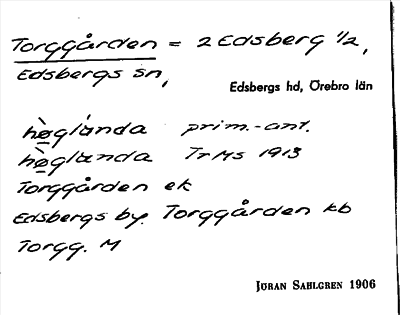 Torggården = 2 Edsberg 1/2,
Edsbergs sn,
Edsbergs hd, Örebro län
hø̀glànda prim.-ant.
hø̀glànda TrMs 1913
Torggården ek
Edsbergs by. Torggården kb
Torgg. M
JÖRAN SAHLGREN 1906